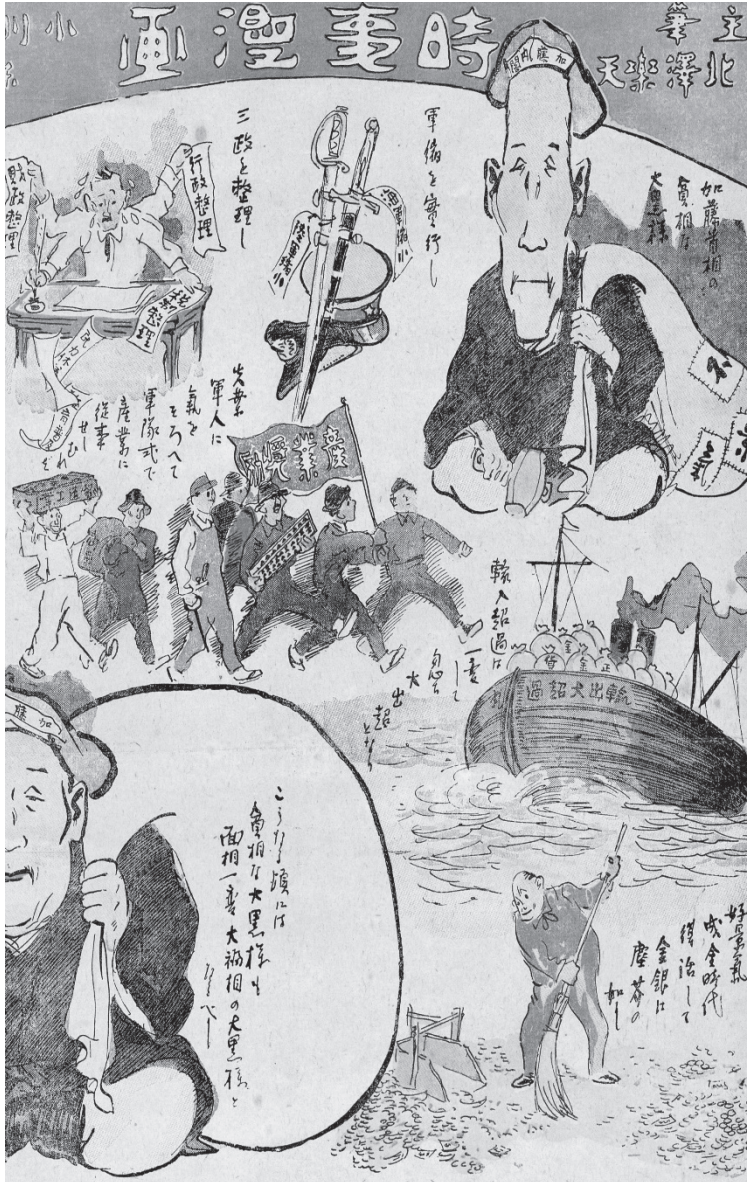 時事漫画
主筆
北澤楽天
小川
加藤内閣
加藤首相の
貧相な
大黒様
軍縮を實行し
海軍縮小
陸軍縮小
三政を整理し
行政整理
財政整理
税制整理
失業
軍人に
氣を
そろへて
軍隊式で
産業に
従事
せし
むれば
産業奨励
輸入超過は
一変して
忽ち
大出超
となり
輸出大超過
正金
好景氣
成金時代
復活して
金銀は
塵芥の
如し
加藤
こうなる頃には
貧相な大黒様も
面相一変大福相の大黒様と
なるべし